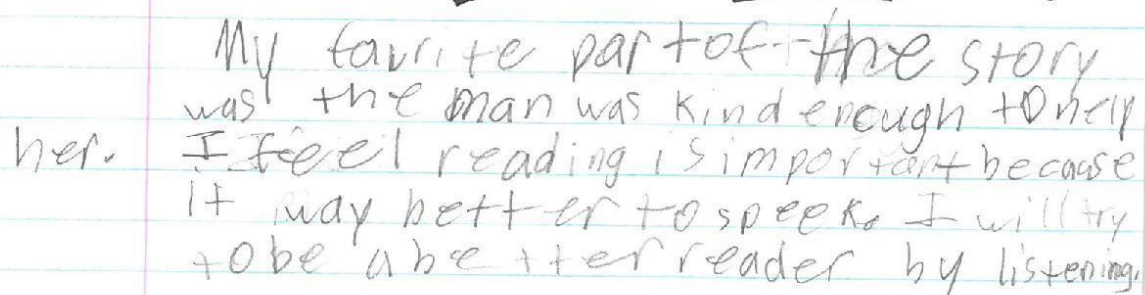 My favrite part of the story
was the man was kind enough to help
her. I feel reading is important because
it way better to speek. I will try
to be a better reader by listening.